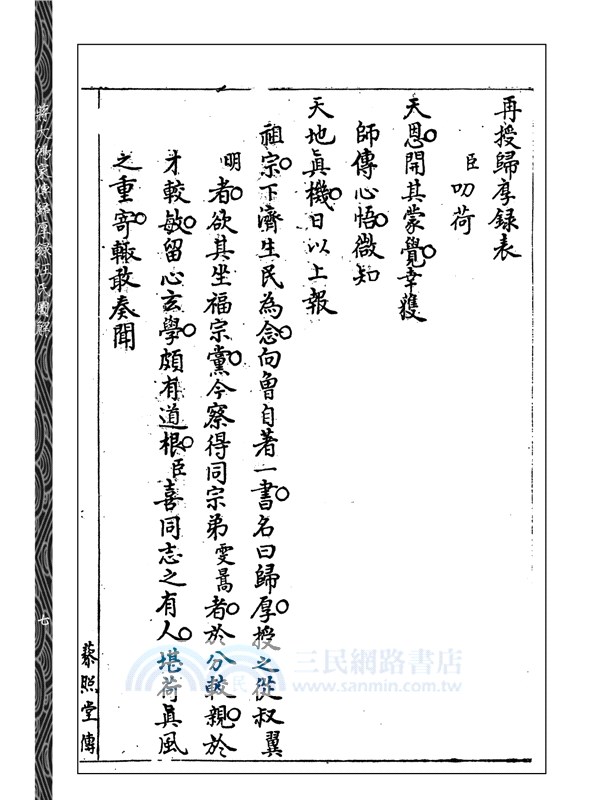 再授歸厚錄表
臣叨荷
天恩開其蒙覺幸獲
師傳心悟微知
天地眞機日以上報
祖宗下濟生民為念向曾自著一書名曰歸厚授之從叔翼
明者欲其坐福宗黨今察得同宗弟雯暠者於分較親於
才較敏留心玄學頗有道根臣喜同志之有人堪荷眞風
之重寄輙敢奏聞
藜照堂傳
七
三民網路書店
www.sanmin.com.tw